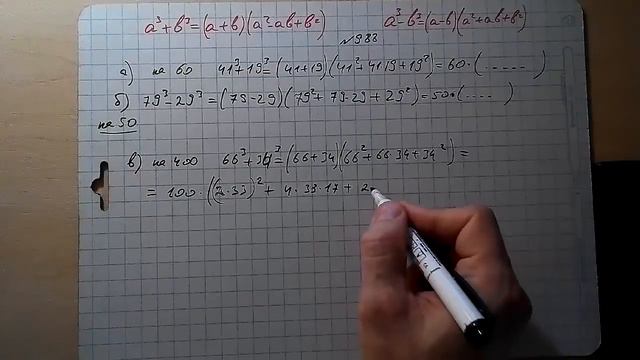 a³+b³=(a+b)(a²-ab+b²) a³-b³=(a-b)(a²+ab+b²)
№983
а) на 60 41³+19³=(41+19)(41²+41·19+19²)=60·(.....)
б) 79³-29³=(79-29)(79²+79·29+29²)=50·(....)
на 50
в) на 400 66³+34³=(66+34)(66²+66·34+34²)=
=100·((2·33)²+4·33·17+2